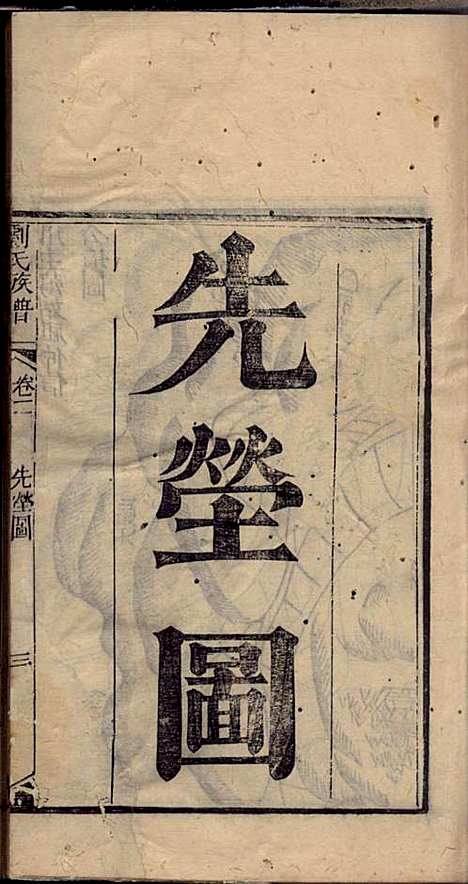 先塋圖
劉氏族譜 卷二 先塋圖 三